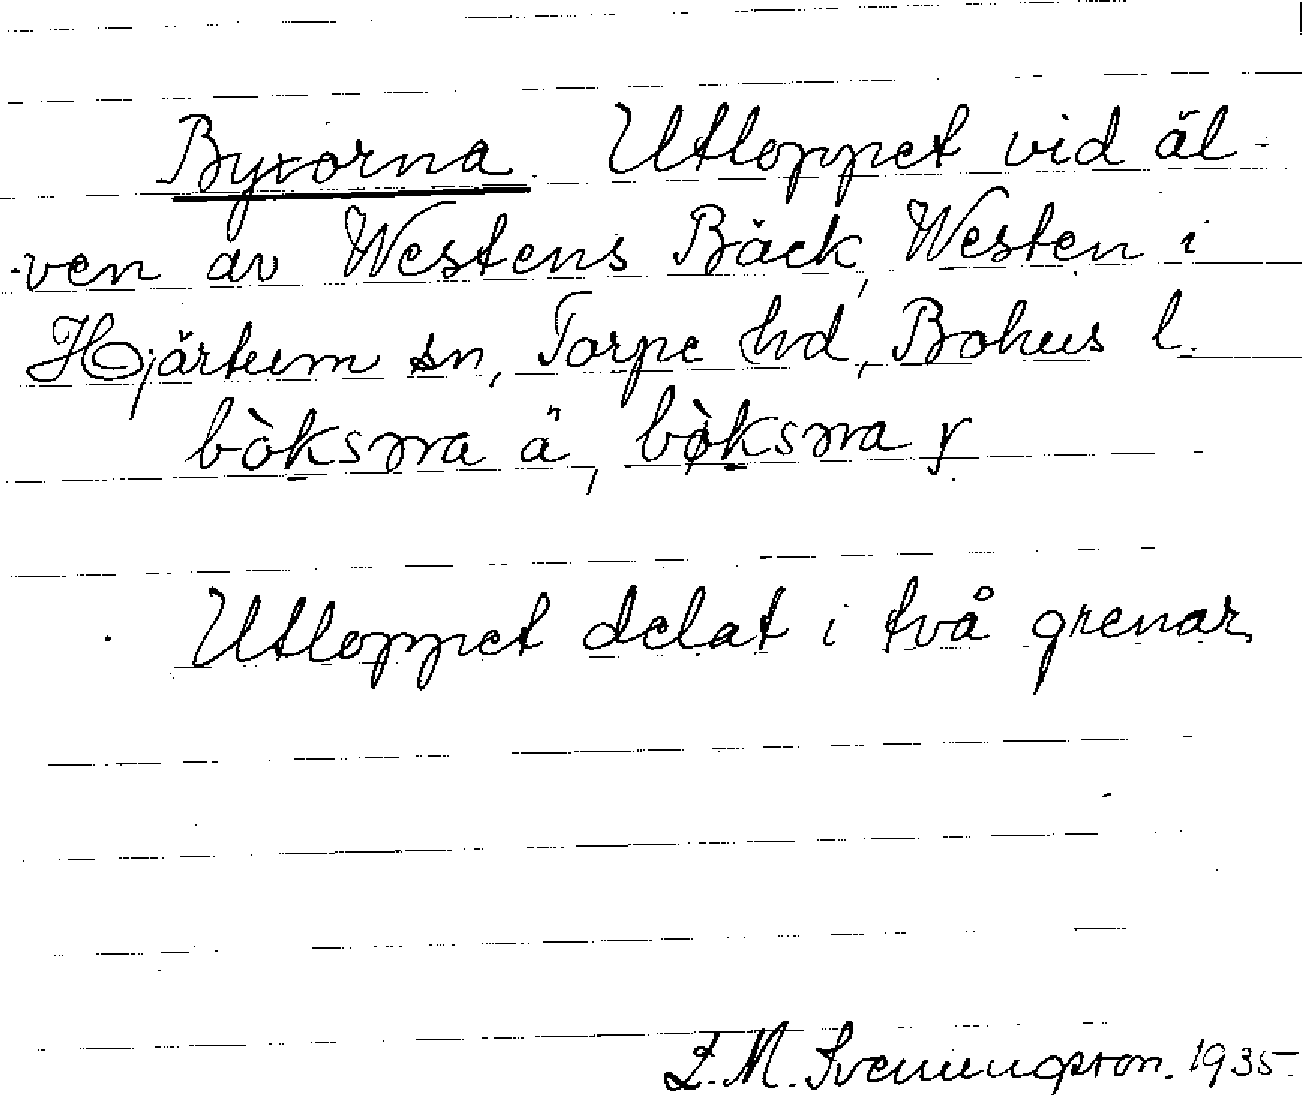 Byxorna Utloppet vid äl-
ven av Westens Bäck, Westen i
Hjärtum sn, Torpe hd, Bohus l.
Utloppet delat i två grenar.
L. M. Svenungsson. 1935.